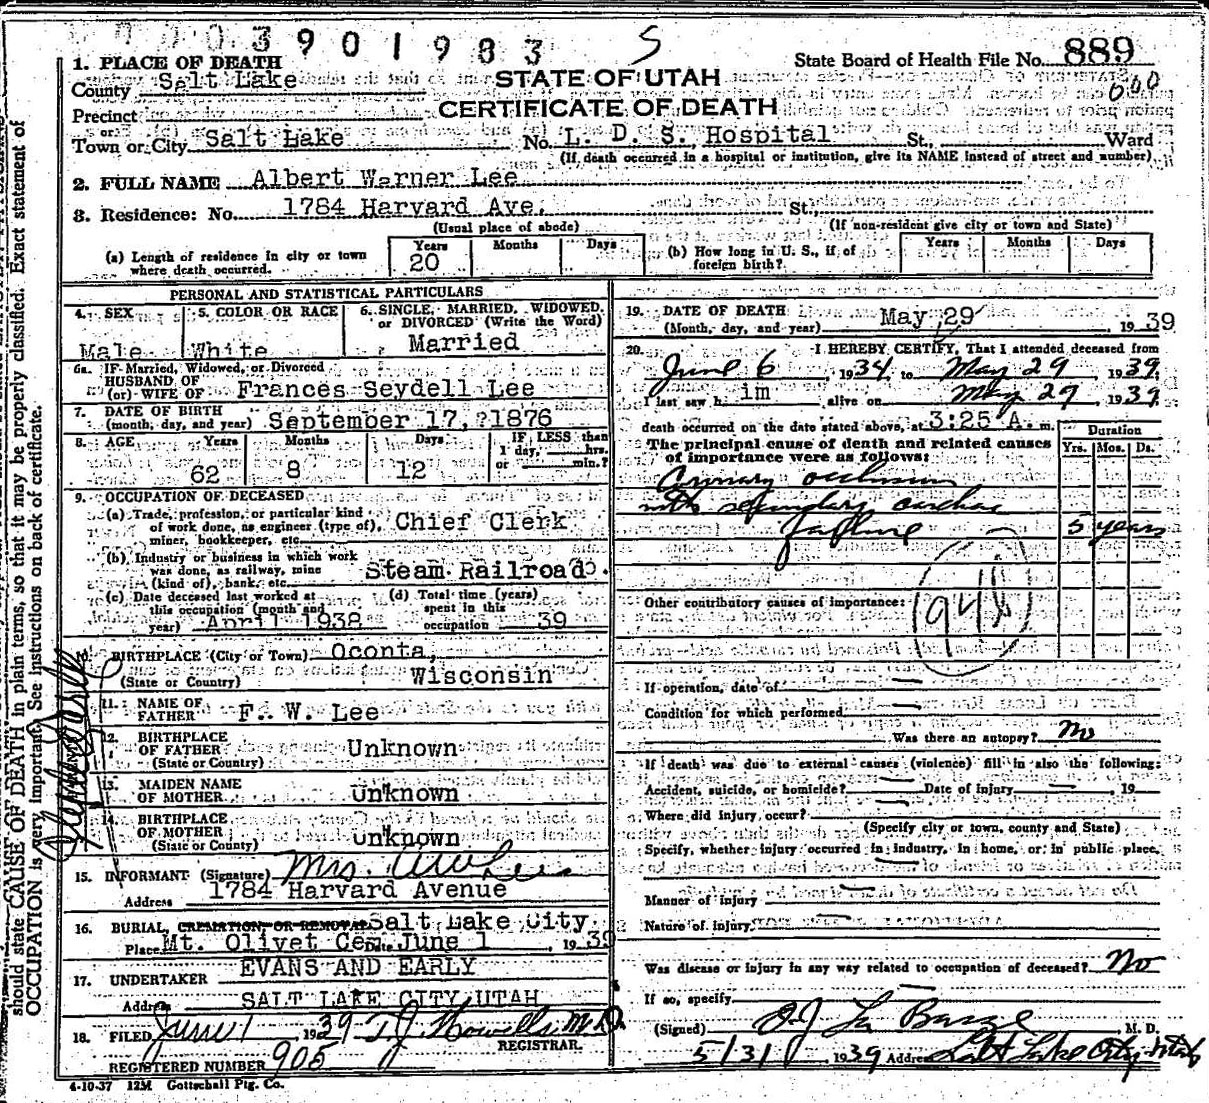 0003901983 S
State Board of Health File No. 889
1. PLACE OF DEATH
County Salt Lake
STATE OF UTAH
CERTIFICATE OF DEATH
Precinct
or
Town or City Salt Lake No. L. D. S. Hospital St., Ward
(If death occurred in a hospital or institution, give its NAME instead of street and number)
2. FULL NAME Albert Warner Lee
3. Residence: No. 1784 Harvard Ave. St.,
(Usual place of abode) (If non-resident give city or town and State)
(a) Length of residence in city or town where death occurred. Years 20 Months Days
(b) How long in U. S., if of foreign birth? Years Months Days
PERSONAL AND STATISTICAL PARTICULARS
4. SEX Male
5. COLOR OR RACE White
6. SINGLE, MARRIED, WIDOWED, or DIVORCED (Write the Word) Married
6a. IF Married, Widowed, or Divorced
HUSBAND OF
(or) WIFE OF Frances Seydell Lee
7. DATE OF BIRTH
(month, day, and year) September 17, 1876
8. AGE Years 62 Months 8 Days 12 IF LESS than 1 day, hrs. or min.?
9. OCCUPATION OF DECEASED
(a) Trade, profession, or particular kind of work done, as engineer (type of), miner, bookkeeper, etc. Chief Clerk
(b) Industry or business in which work was done, as railway, mine (kind of), bank, etc. Steam Railroad
(c) Date deceased last worked at this occupation (month and year) April 1938
(d) Total time (years) spent in this occupation 39
10. BIRTHPLACE (City or Town) Oconta,
(State or Country) Wisconsin
11. NAME OF FATHER F. W. Lee
12. BIRTHPLACE OF FATHER (State or Country) Unknown
13. MAIDEN NAME OF MOTHER unknown
14. BIRTHPLACE OF MOTHER (State or County) unknown
15. INFORMANT (Signature) Mrs. A W Lee
Address 1784 Harvard Avenue
16. BURIAL, CREMATION OR REMOVAL Salt Lake City
Place Mt. Olivet Cem. June 1, 1939
17. UNDERTAKER EVANS AND EARLY
Address SALT LAKE CITY, UTAH
18. FILED June 1, 1939 T. J. Howells M.D.
REGISTRAR.
REGISTERED NUMBER 905
4-10-37 12M Gottschall Ptg. Co.
19. DATE OF DEATH
(Month, day, and year) May 29, 1939
20. I HEREBY CERTIFY, That I attended deceased from
June 6, 1934, to May 29, 1939.
I last saw h im alive on May 29, 1939.
death occurred on the date stated above, at 3:25 A. m.
The principal cause of death and related causes of importance were as follows:
Duration
Yrs. Mos. Ds.
Coronary occlusion
with secondary cardiac
failure 5 years
Other contributory causes of importance:
If operation, date of
Condition for which performed
Was there an autopsy? No
If death was due to external causes (violence) fill in also the following:
Accident, suicide, or homicide? Date of injury , 19
Where did injury occur?
(Specify city or town, county and State)
Specify, whether injury occurred in industry, in home, or in public place.
Manner of injury
Nature of injury
Was disease or injury in any way related to occupation of deceased? No
If so, specify
(Signed) O J La Barge, M. D.
5/31, 1939 Address Salt Lake City Utah
should state CAUSE OF DEATH in plain terms, so that it may be properly classified. Exact statement of
OCCUPATION is very important. See instructions on back of certificate.